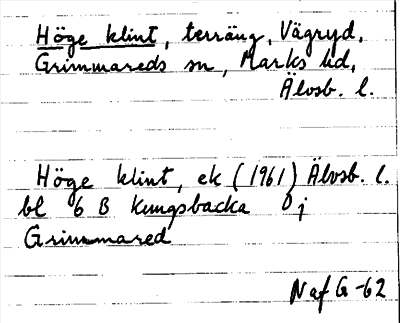 Höge klint, terräng, Vägryd,
Grimmareds sn, Marks hd,
Älvsb. l.
Höge klint, ek (1961) Älvsb. l.
bl 6 B Kungsbacka 0 j
Grimmared
Naf G-62